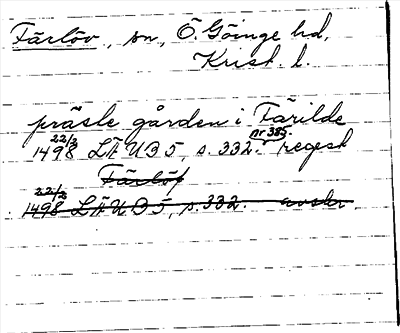 Färlöv, sn, Ö. Göinge hd,
Krist. l.
prästegården i Färilde
1498 22/2 LÄUB 5, s. 332. nr 385. regest
Färlöf
1498 22/2 LÄUB 5, s. 332. avskr.